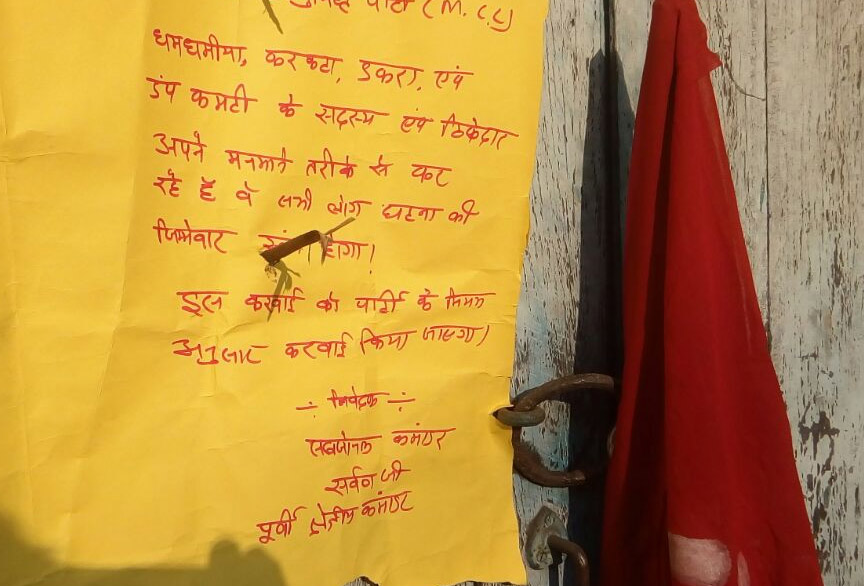 पार्टी (M.C.C)
धमधमीया, करकटा, डकरा, एंव
डंप कमटी के सदस्य एंव ठिकेदार
अपने मनमाने तरीके से कर
रहे हैं वे सभी लोग घटना की
जिमेवार होगा।
इस करवाई को पार्टी के नियम
अनुसार करवाई किया जाएगा।
÷ निवेदक ÷
सबजोनल कमांडर
सर्वन जी
पूर्वी क्षेत्रीय कमांडर